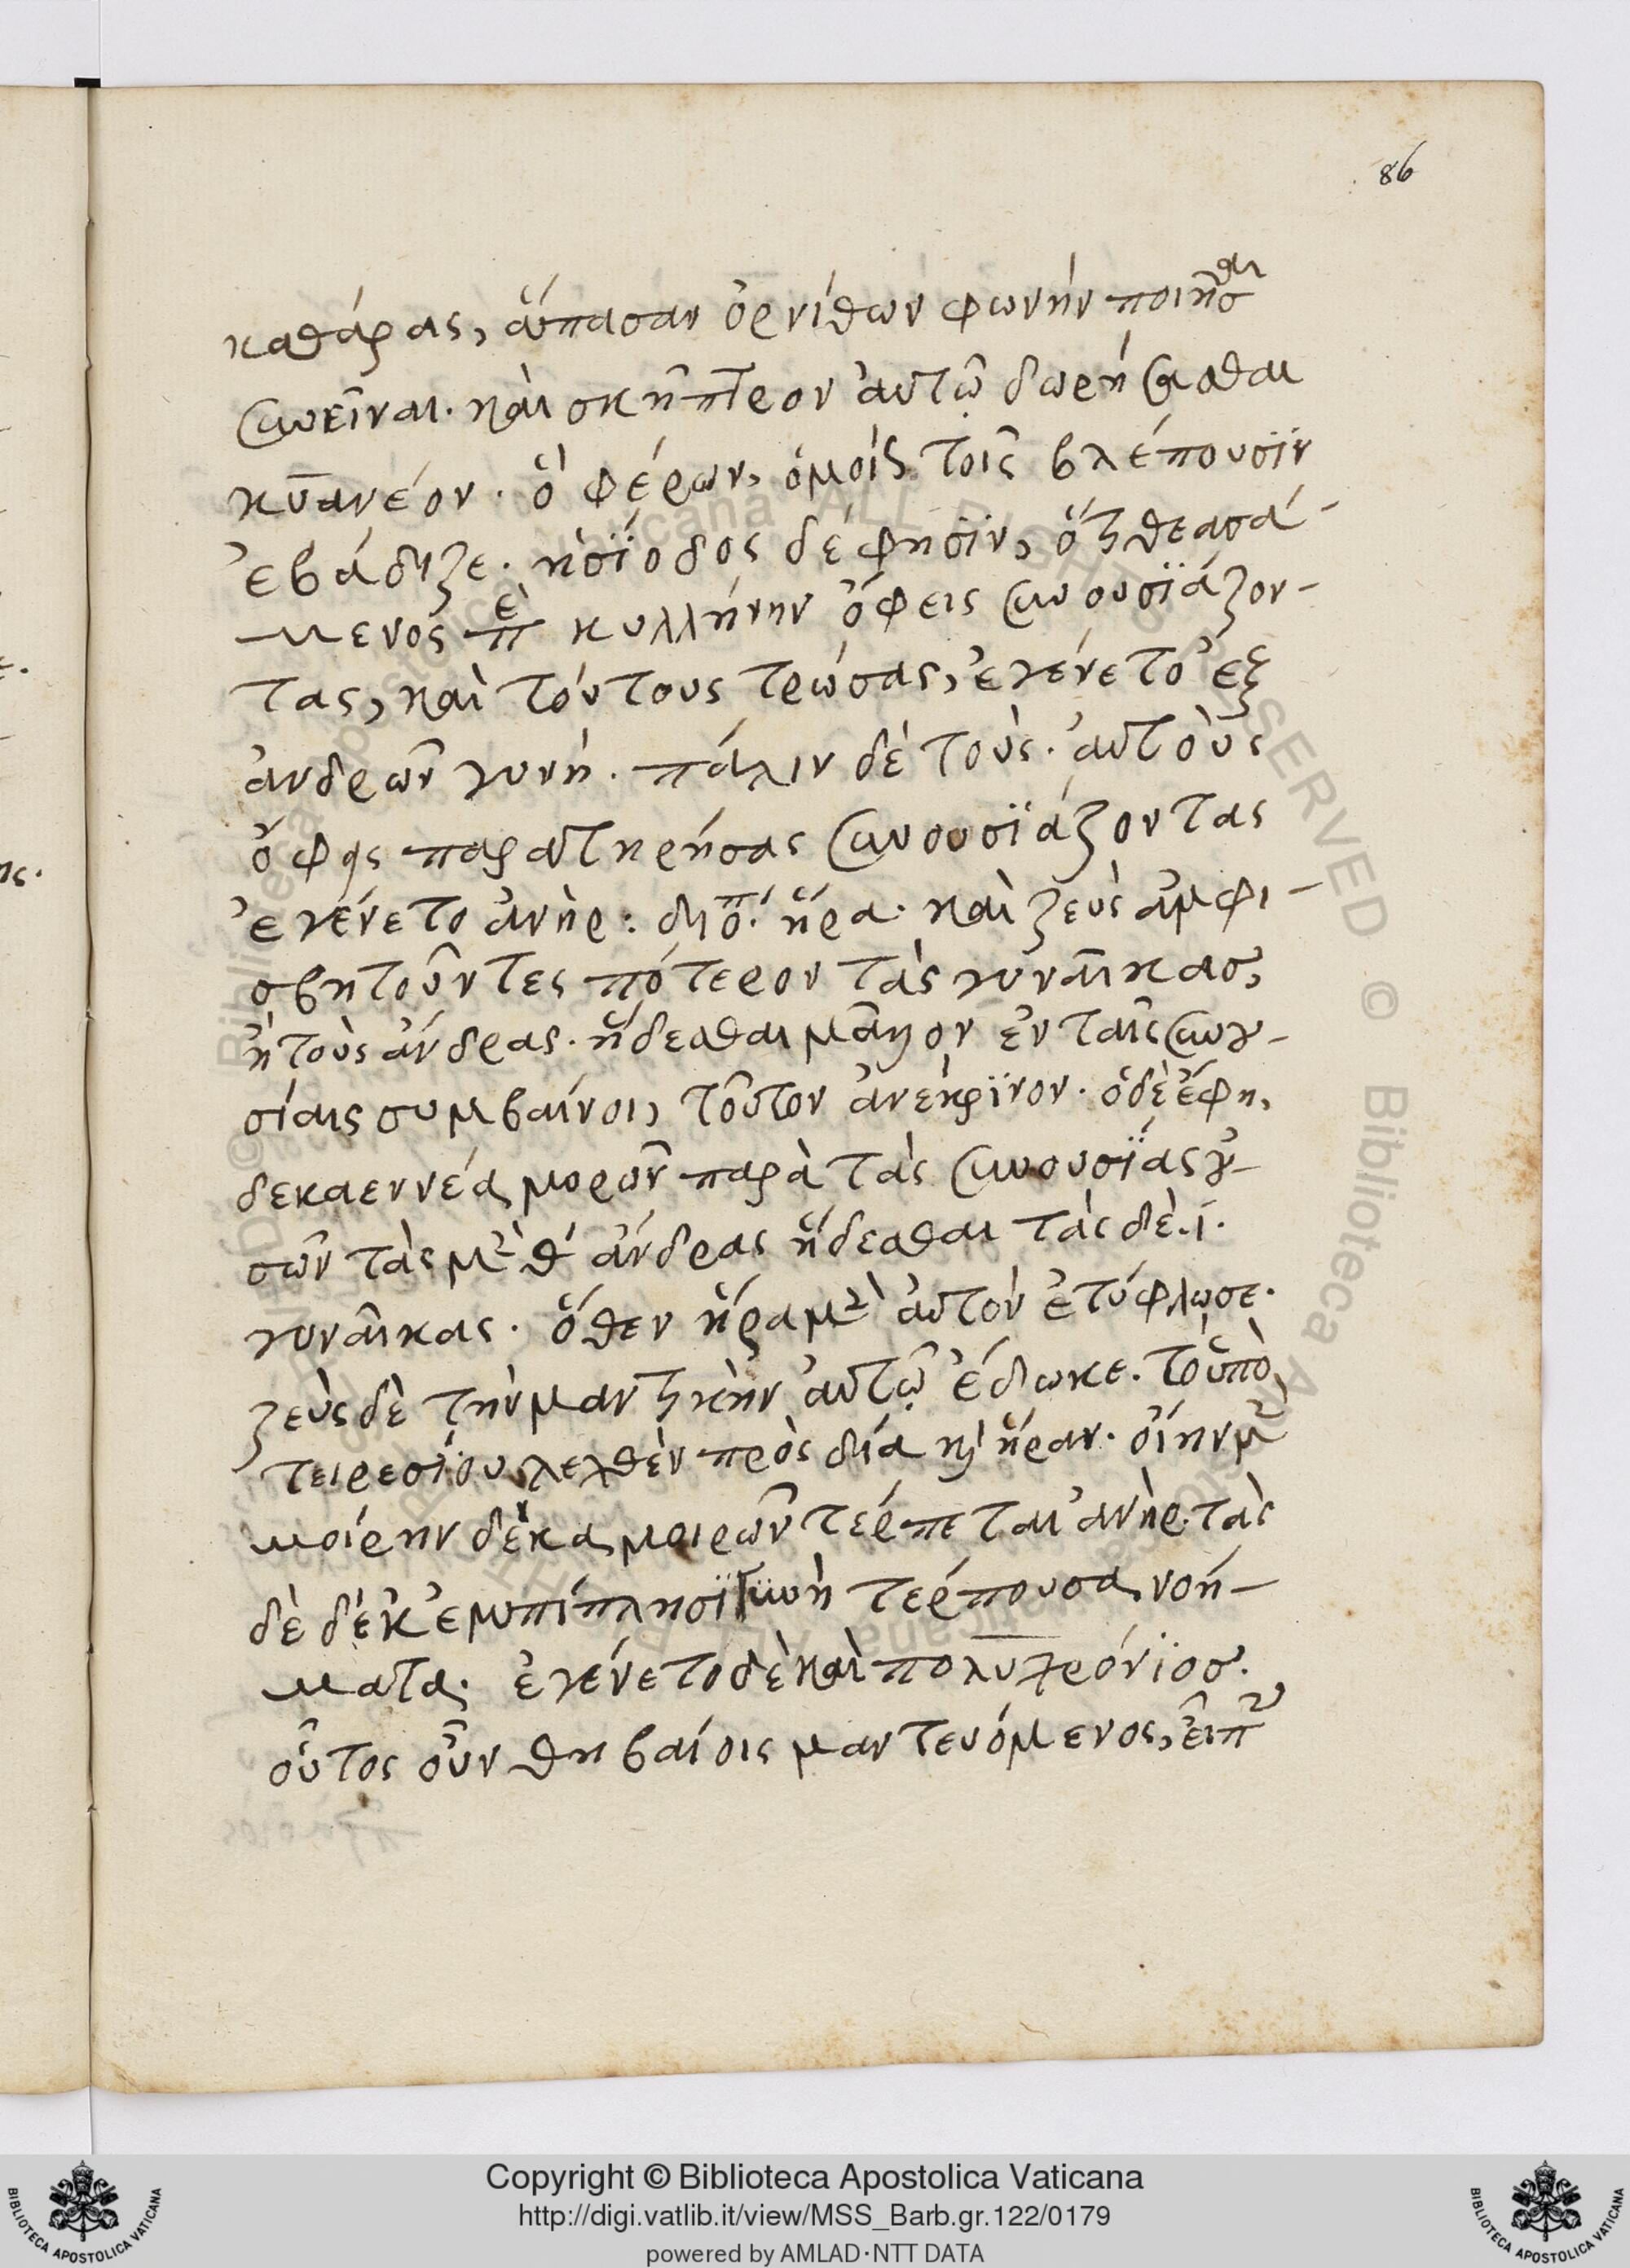 86
καθάρας, ἅπασαν ὀρνίθων φωνὴν ποιῆσαι
συνεῖναι· καὶ σκῆπτρον ἀυτῷ δωρήσασθαι
κυανέον· ὃ φέρων, ὁμοίως τοῖς βλέπουσϊν
ἐβάδιζε· ἡσΐοδος δέ φησϊν, ὅτι θεασά-
μενος ἐπὶ κυλλήνην ὄφεις συνουσϊάζον-
τας, καὶ τούτους τρώσας, ἐγένετο ἐξ
ἀνδρῶν γυνή. πάλιν δὲ τοὺς· ἀυτοὺς
ὄφεις παρατηρήσας συνουσϊάζοντας
ἐγένετο ἀνήρ: διόπερ ἥρα· καὶ ζεὺς ἀμφι-
σβητοῦντες πότερον τὰς γυναῖκας,
ἢ τοὺς ἄνδρας· ἥδεσθαι μᾶλλον ἐν ταῖς συνου-
σίαις συμβαίνοι, τοῦτον ἀνέκρϊνον· ὁ δὲ ἔφη,
δεκαεννέα μορῶν παρὰ τὰς συνουσΐας οὐ-
σῶν τὰς μὲν θ´ ἄνδρας ἥδεσθαι τὰς δὲ. ί.
γυναῖκας· ὅθεν ἥρα μὲν ἀυτὸν ἐτύφλωσε·
ζεὺς δὲ τὴν μαντικὴν ἀυτῷ ἔδωκε. τὸ ὑπὸ
τειρεσΐου λεχθὲν πρὸς δία καὶ ἥραν· οἴην μὲν
μοίρην δέκα μοιρῶν τέρπεται ἀνὴρ. τὰς
δὲ δέκ' ἐμπίπλησϊ γυνὴ τέρπουσα νοή-
ματα. ἐγένετο δὲ καὶ πολυχρόνϊος.
οὗτος οὖν θηβαίοις μαντευόμενος, εἶπεν
Copyright © Biblioteca Apostolica Vaticana
http://digi.vatlib.it/view/MSS_Barb.gr.122/0179
powered by AMLAD·NTT DATA